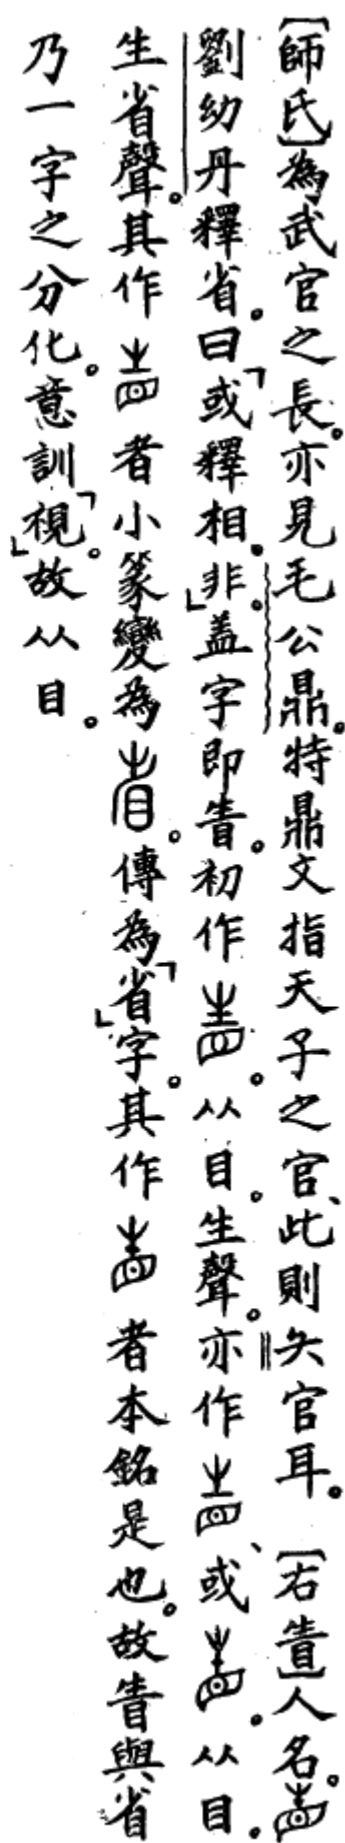 [師氏]為武官之長。亦見毛公鼎。特鼎文指天子之官、此則夨官耳。[右眚]人名。
劉幼丹釋省。曰「或釋相。非」。盖字即眚。初作。从目。生聲。亦作、或。从目。
生省聲。其作者小篆變為。傳為「省」字。其作者本銘是也。故眚與省
乃一字之分化。意訓「視」。故从目。